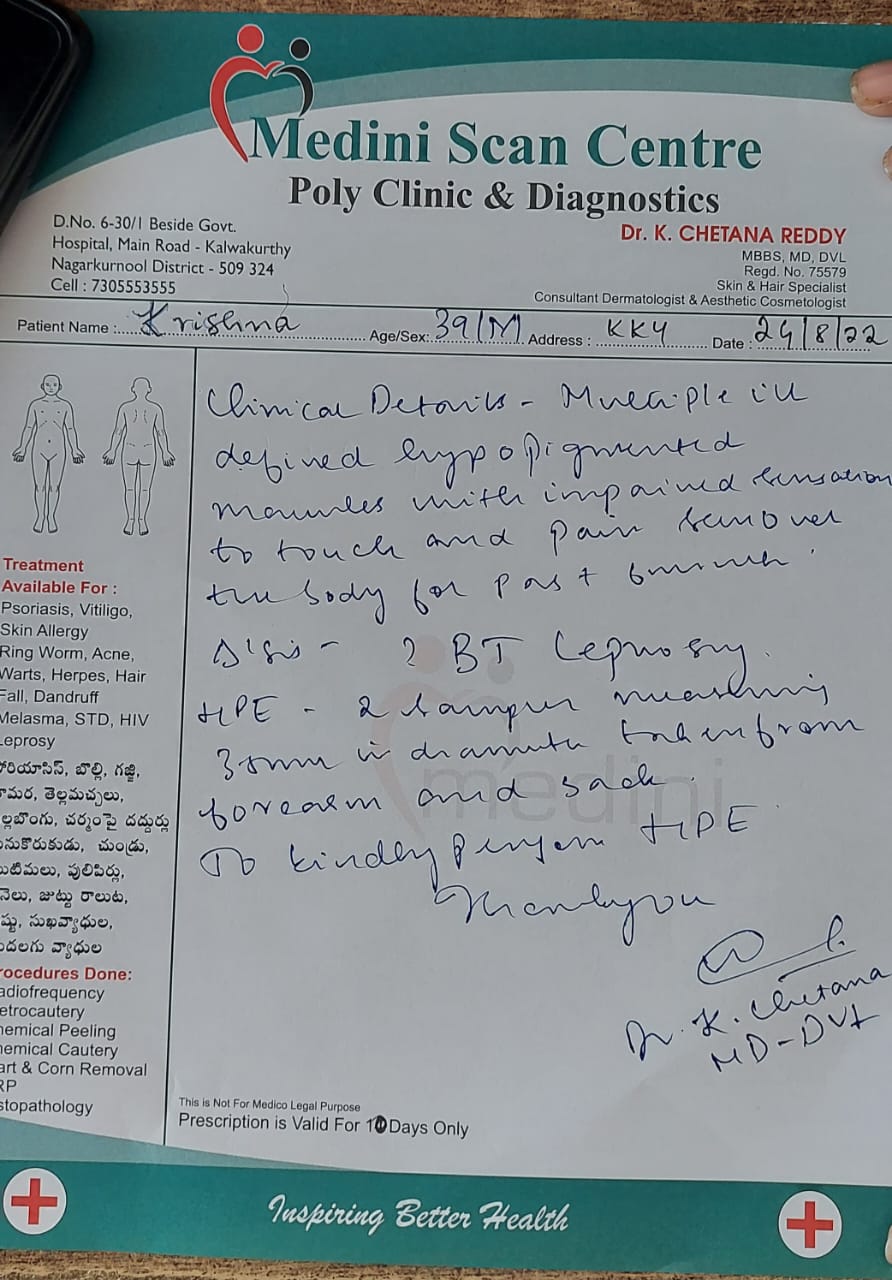 Medini Scan Centre
Poly Clinic & Diagnostics
D.No. 6-30/1 Beside Govt.
Hospital, Main Road - Kalwakurthy
Nagarkurnool District - 509 324
Cell : 7305553555
Dr. K. CHETANA REDDY
MBBS, MD, DVL
Regd. No. 75579
Skin & Hair Specialist
Consultant Dermatologist & Aesthetic Cosmetologist
Patient Name : Krishna Age/Sex: 39/M Address : KKY Date : 24/8/22
Clinical Details - Multiple ill
defined hypopigmented
macules with impaired sensation
to touch and pain seen over
the body for past 6 month
D/sis - ? BT Leprosy.
HPE - 2 samples measuring
in diameter taken from
forearm and back.
To kindly perform HPE
Thankyou
Dr. K. Chetana
MD-DVL
Treatment
Available For :
Psoriasis, Vitiligo,
Skin Allergy
Ring Worm, Acne,
Warts, Herpes, Hair
Fall, Dandruff
Melasma, STD, HIV
eprosy
ోరియాసిస్, బొల్లి, గజ్జి,
ామర, తెల్లమచ్చలు,
ల్లబొంగు, చర్మంపై దద్దుర్లు
ునుకొరుకుడు, చుండ్రు,
ుటిమలు, పులిపిర్లు,
నెలు, జుట్టు రాలుట,
ష్టు, సుఖవ్యాధుల,
ుదలగు వ్యాధుల
rocedures Done:
adiofrequency
etrocautery
hemical Peeling
hemical Cautery
art & Corn Removal
RP
stopathology
medini
This is Not For Medico Legal Purpose
Prescription is Valid For 10 Days Only
Inspiring Better Health